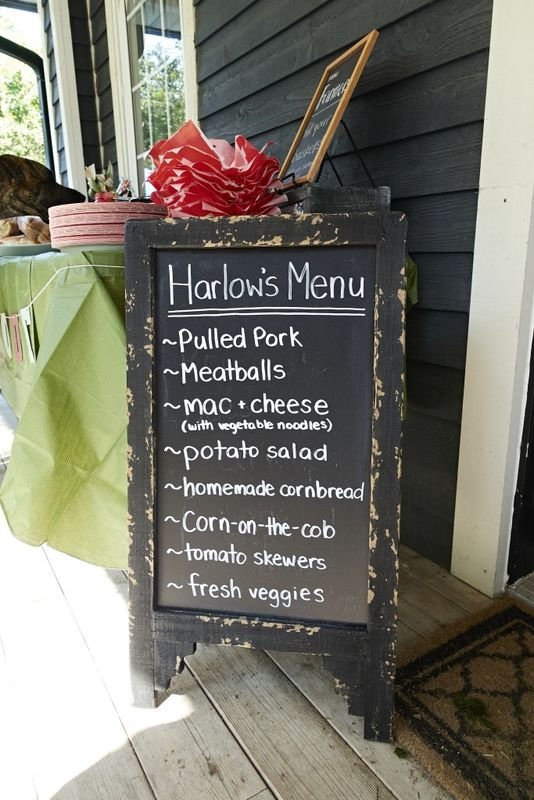 Harlow's Menu
~Pulled Pork
~Meatballs
~mac + cheese
(with vegetable noodles)
~potato salad
~homemade cornbread
~Corn-on-the-cob
~tomato skewers
~fresh veggies
your